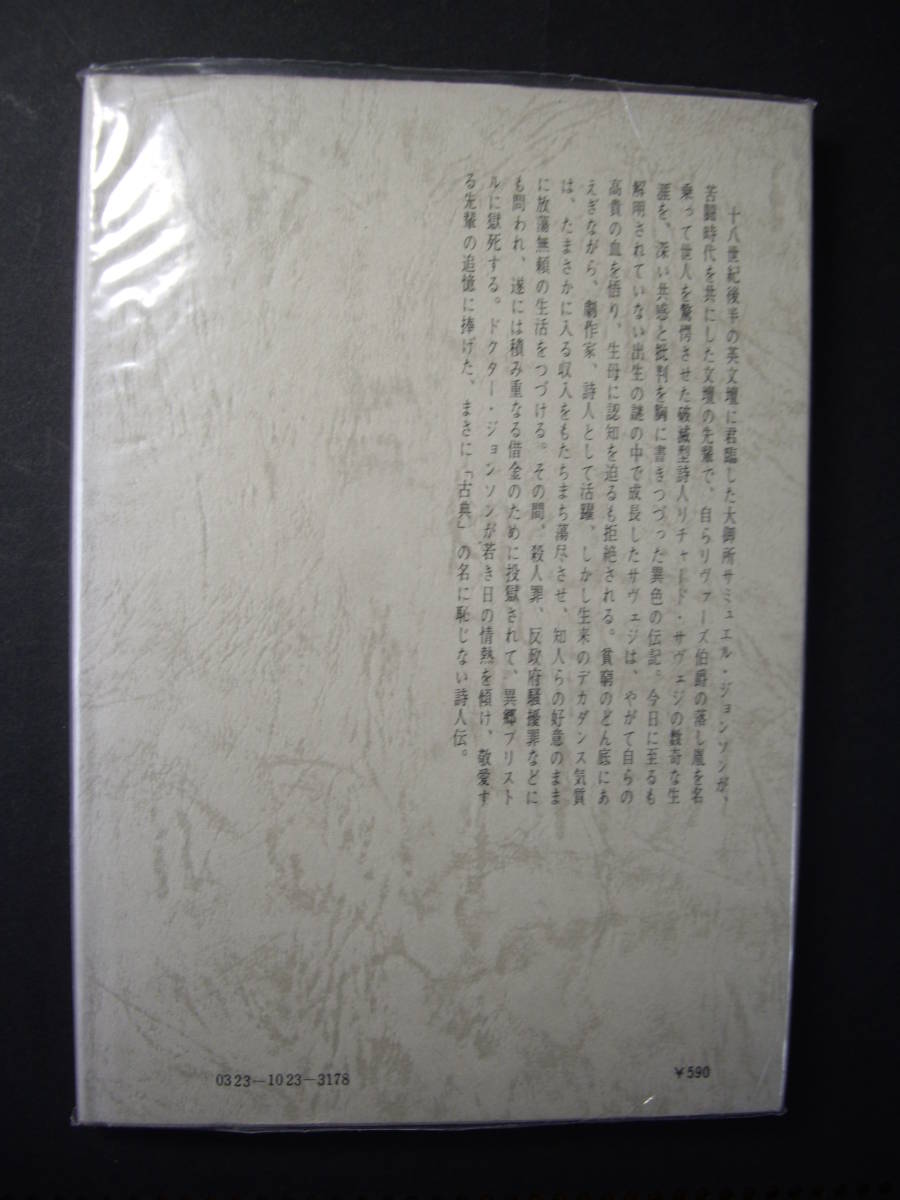 十八世紀後半の英文壇に君臨した大御所サミュエル・ジョンソンが、
苦闘時代を共にした文壇の先輩で、自らリヴァーズ伯爵の落し胤を名
乗って世人を驚愕させた破滅型詩人リチャード・サヴェジの数奇な生
涯を、深い共感と批判を胸に書きつづった異色の伝記。今日に至るも
解明されていない出生の謎の中で成長したサヴェジは、やがて自らの
高貴の血を悟り、生母に認知を迫るも拒絶される。貧窮のどん底にあ
えぎながら、劇作家、詩人として活躍、しかし生来のデカダンス気質
は、たまさかに入る収入をもたちまち蕩尽させ、知人らの好意のまま
に放蕩無頼の生活をつづける。その間、殺人罪、反政府騒擾罪などに
も問われ、遂には積み重なる借金のために投獄されて、異郷ブリスト
ルに獄死する。ドクター・ジョンソンが若き日の情熱を傾け、敬愛す
る先輩の追憶に捧げた、まさに「古典」の名に恥じない詩人伝。
0323-1023-3178
￥590